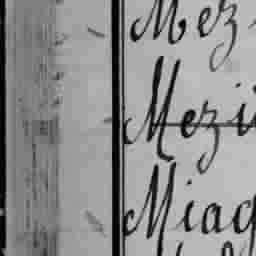 Mez
Mezi
Miag